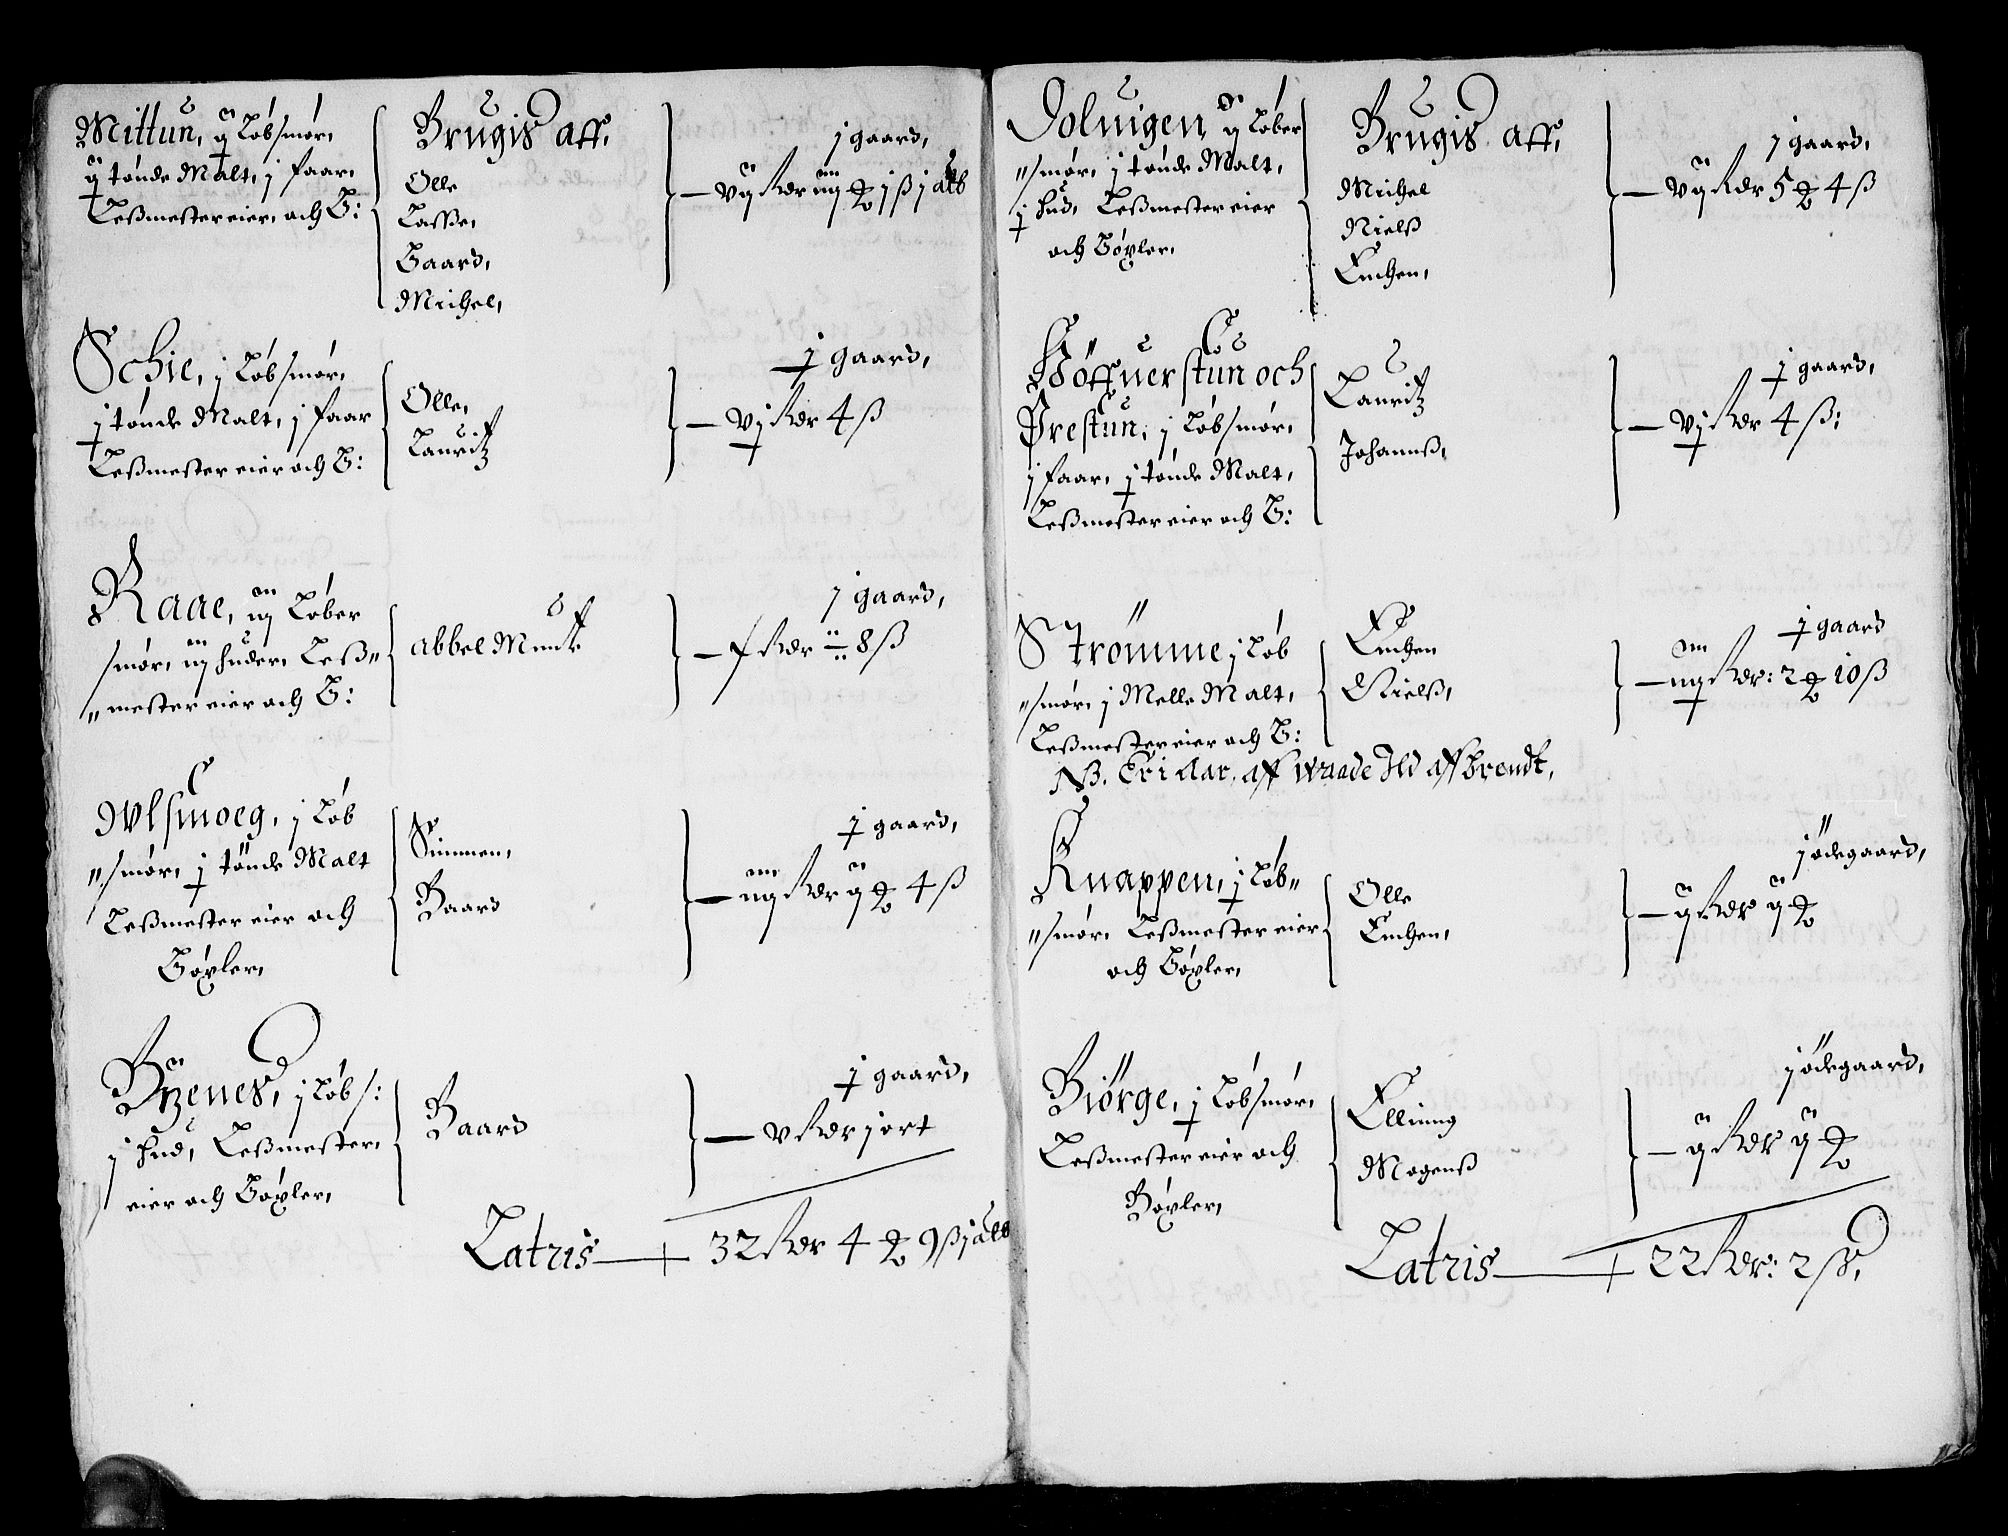 Mittun, ij Løb smør,
ij tønde Malt, j faar,
Leßmester eier, och B:
Brugis aff,
Olle
Lasse,
Baard,
Michel,
j gaard,
vij Rdr iij ꝶ j ß j alb
Schie, j Løb smør,
j tønde Malt, j faar
Leßmester eier och B:
Olle,
Lauritz
j gaard,
vj Rdr 4 ß
Raae, iij Løber
smør, iij huder, Leß"
"mester eier och B:
abbel Munk
j gaard,
Rdr 8 ß
Wlsmoeg, j Løb
"smør, j tönde Malt
Leßmester eier och
Bøxler,
Simmen,
Baard
j gaard,
iiij Rdr ij ꝶ 4 ß
Byenes, j Løb s:
j hud, Leßmester,
eier och Bøxler,
Baard
j gaard,
v Rdr j ort
Latris 32 Rdr 4 ꝶ 9 ß j alb
Soluigen ij Løber
"smør, j tønde Malt,
j hud, Leßmester eier
och Bøxler,
Brugis aff,
Michel
Nielß
Enchen,
j gaard,
vij Rdr 5 ꝶ 4 ß
Höffuerstun och
Prestun, j Løb smør,
j faar, j tønde Malt,
Leßmester eier och B:
Lauritz
Johannß,
j gaard,
vj Rdr 4 ß:
Strömme j Løb
"smør, j Melle Malt,
Leßmester eier och B:
Enchen
Nielß,
j gaard
iiij Rdr: 2 ꝶ 10 ß
NB. Er i Aar, aff Waade Ild affbrendt,
Knappen, j Løb"
"smør, Leßmester eier
och Bøxler,
Olle
Enchen,
j ödegaard,
ij Rdr ij ꝶ
Biörge, j Løb smør,
Leßmester eier och
Bøxler,
Elling
Mogenß
j ödegaard,
ij Rdr ij ꝶ
Latris 22 Rdr: 2 ß,